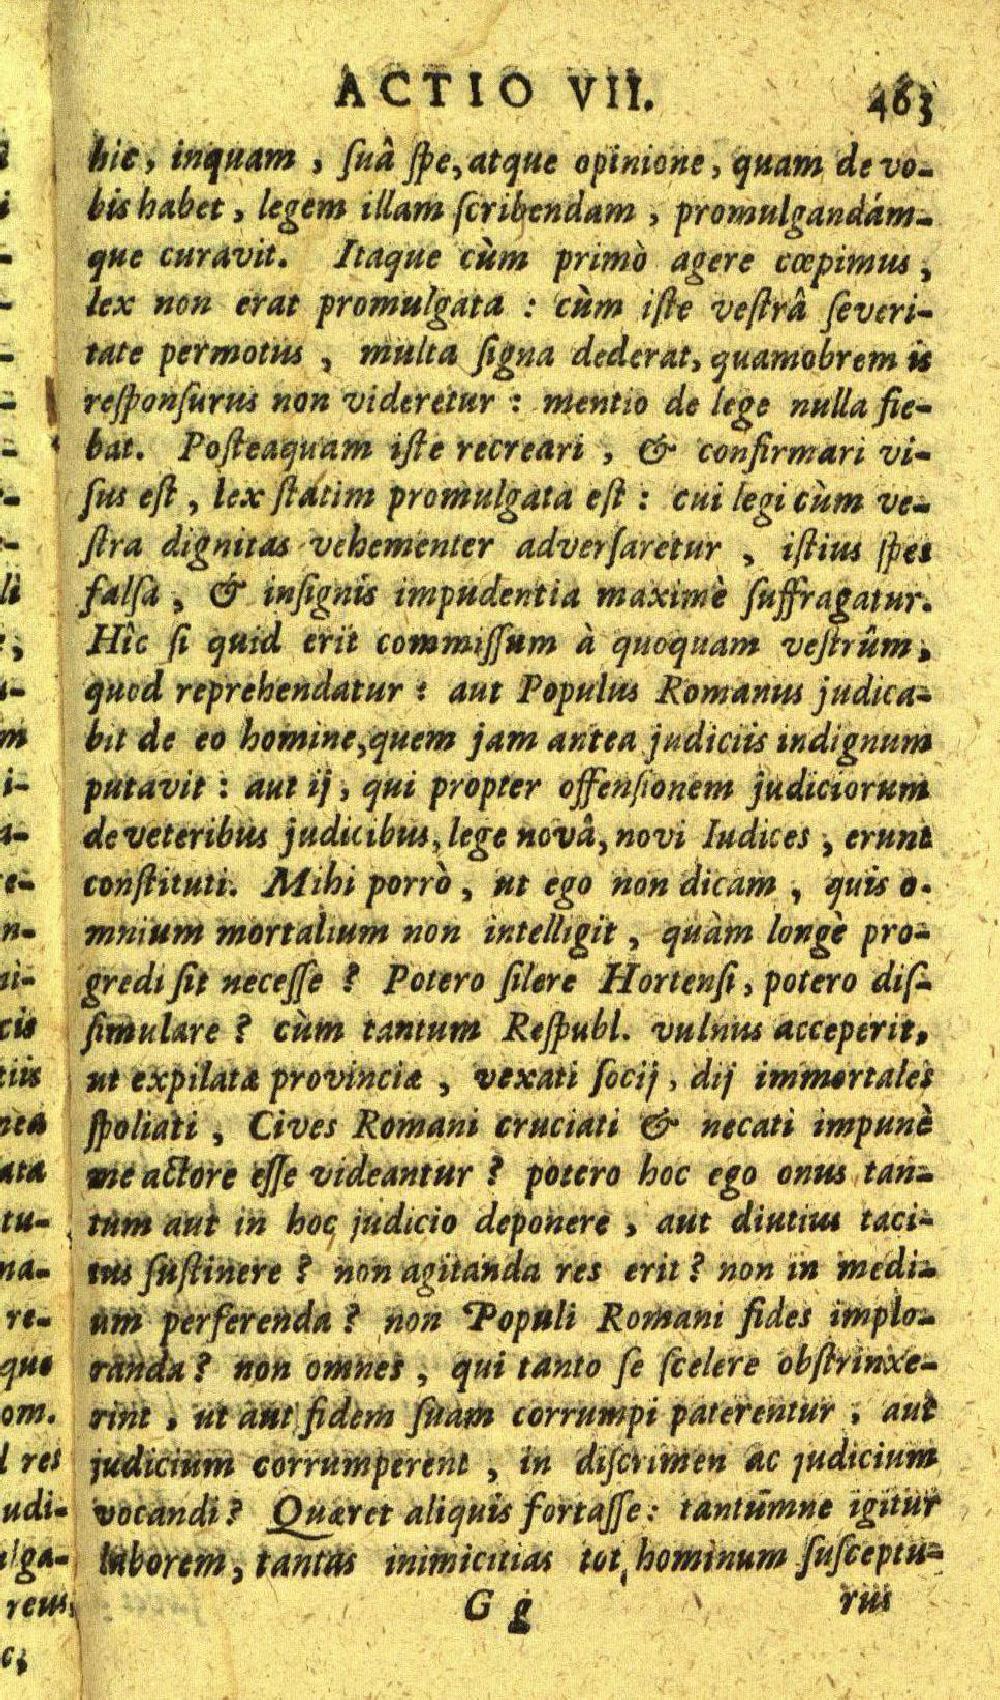 ACTIO VII. 463
hic, inquam, ſuâ ſpe, atque opinione, quam de vo-
bis habet, legem illam ſcribendam, promulgandám-
que curavit. Itaque cùm primò agere cœpimus,
lex non erat promulgata : cùm iſte veſtrâ ſeveri-
tate permotus, multa ſigna dederat, quamobrem is
reſponſurus non videretur : mentio de lege nulla fie-
bat. Poſteaquam iſte recreari, & confirmari vi-
ſus eſt, lex ſtatim promulgata eſt : cui legi cùm ve-
ſtra dignitas vehementer adverſaretur, iſtius ſpes
falſa, & inſignis impudentia maximè ſuffragatur.
Hîc ſi quid erit commiſſum à quoquam veſtrûm,
quod reprehendatur : aut Populus Romanus judica-
bit de eo homine, quem jam antea judiciis indignum
putavit : aut ij, qui propter offenſionem judiciorum
de veteribus judicibus, lege novâ, novi Iudices, erunt
conſtituti. Mihi porrò, ut ego non dicam, quis o-
mnium mortalium non intelligit, quàm longè pro-
gredi ſit neceſſe ? Potero ſilere Hortenſi, potero diſ-
ſimulare ? cùm tantum Reſpubl. vulnus acceperit,
ut expilatæ provinciæ, vexati ſocij, dij immortales
ſpoliati, Cives Romani cruciati & necati impunè
me actore eſſe videantur ? potero hoc ego onus tan-
tum aut in hoc judicio deponere, aut diutius taci-
tus ſuſtinere ? non agitanda res erit ? non in medi-
um perferenda ? non Populi Romani fides implo-
randa ? non omnes, qui tanto ſe ſcelere obſtrinxe-
rint, ut aut fidem ſuam corrumpi paterentur, aut
judicium corrumperent, in diſcrimen ac judicium
vocandi ? Quæret aliquis fortaſſe : tantūmne igitur
laborem, tantas inimicitias tot hominum ſuſceptu-
G g rus